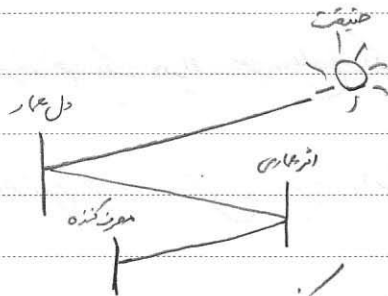 حقیقت
دل معمار
اثر معماری
مصرف کننده